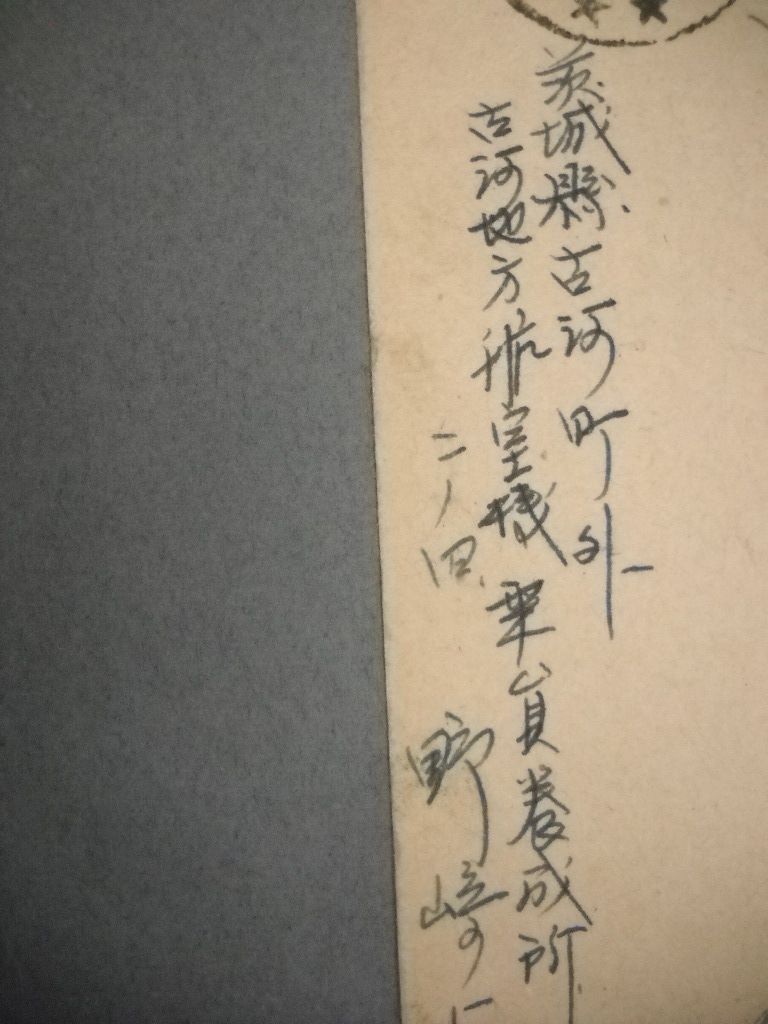 茨城縣古河町外
古河地方航空機乗員養成所
二ノ四
野崎